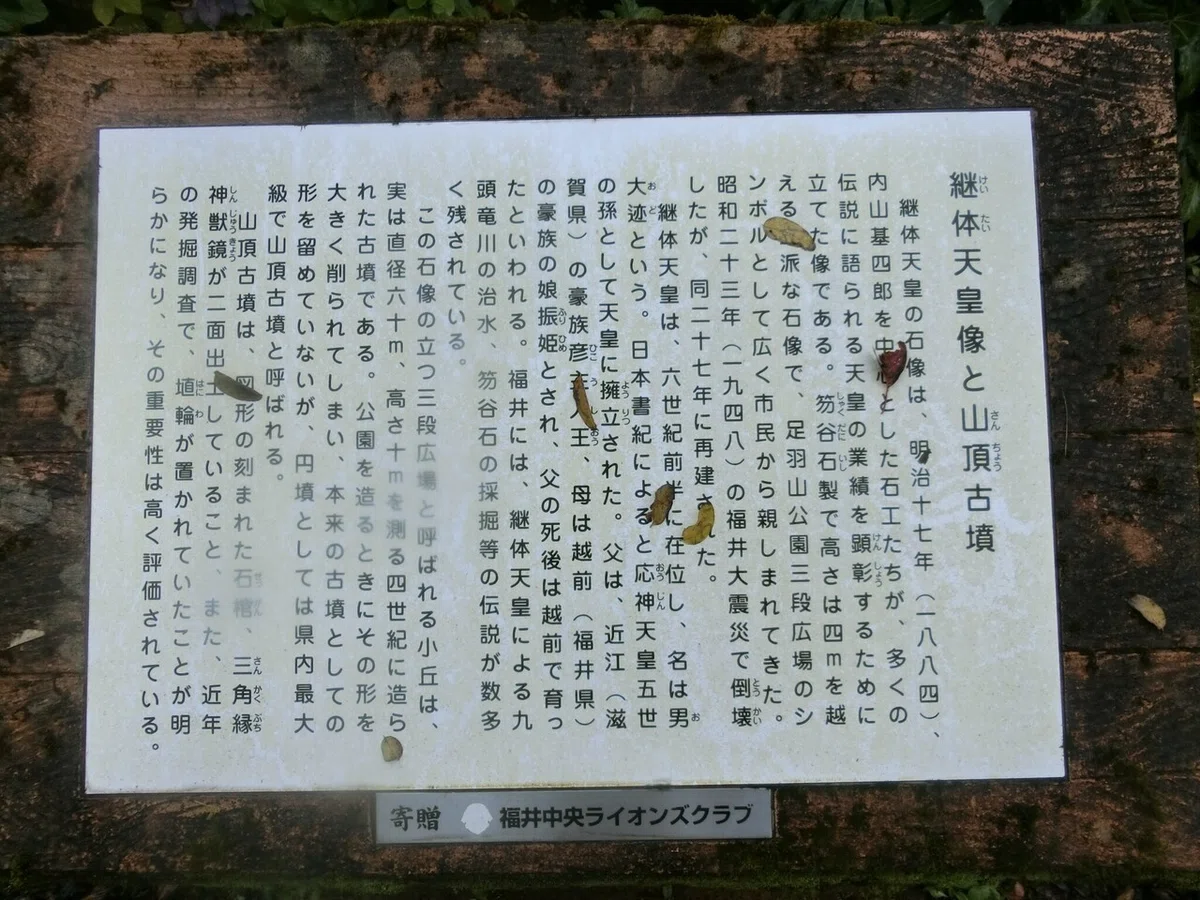 継体天皇像と山頂古墳
継体天皇の石像は、明治十七年(一八八四)、
内山基四郎を中心とした石工たちが、多くの
伝説に語られる天皇の業績を顕彰するために
立てた像である。笏谷石製で高さは四mを越
える 派な石像で、足羽山公園三段広場のシ
ンボルとして広く市民から親しまれてきた。
昭和二十三年(一九四八)の福井大震災で倒壊
したが、同二十七年に再建された。
継体天皇は、六世紀前半に在位し、名は男
大迹という。日本書紀によると応神天皇五世
の孫として天皇に擁立された。父は、近江(滋
賀県)の豪族彦主人王、母は越前(福井県)
の豪族の娘振姫とされ、父の死後は越前で育っ
たといわれる。福井には、継体天皇による九
頭竜川の治水、笏谷石の採掘等の伝説が数多
く残されている。
この石像の立つ三段広場と呼ばれる小丘は、
実は直径六十m、高さ十mを測る四世紀に造ら
れた古墳である。公園を造るときにその形を
大きく削られてしまい、本来の古墳としての
形を留めていないが、円墳としては県内最大
級で山頂古墳と呼ばれる。
山頂古墳は、 形の刻まれた石棺、三角縁
神獣鏡が二面出土していること、また、近年
の発掘調査で、埴輪が置かれていたことが明
らかになり、その重要性は高く評価されている。
寄贈 福井中央ライオンズクラブ